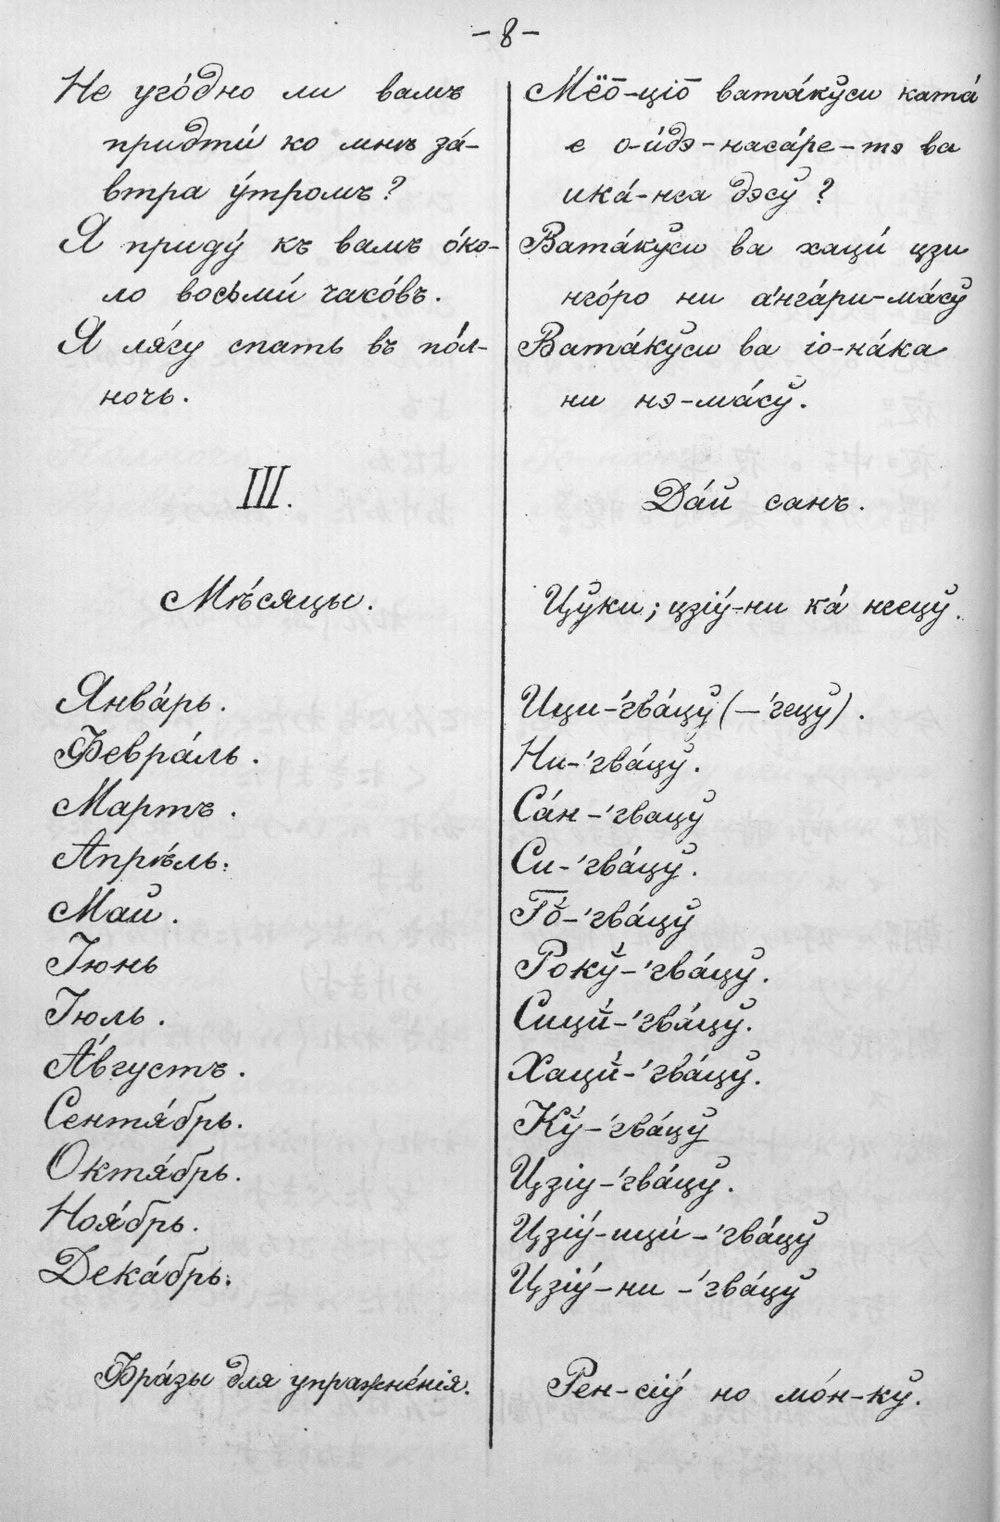 – 8 –
Не уго́дно ли вамъ
придти́ ко мнѣ за́-
втра у́тромъ?
Я приду́ къ вамъ о́ко-
ло восьми́ часо́въ.
Я ля́гу спать въ по́л-
ночь.
III.
Мѣ́сяцы.
Янва́рь.
Февра́ль.
Мартъ.
Апрѣ́ль.
Май.
Іюнь
Іюль.
А́вгустъ.
Сентя́брь.
Октя́брь.
Ноя́брь.
Дека́брь.
Фра́зы для упражне́нія.
Мёо̄-ціо̄ вата́кўси ката́
е о-и́дэ-наса́ре-тэ ва
ика́-нга дэсў?
Вата́кўси ва хаци́ цзи
нго́ро ни а́нга́ри-ма́сў
Вата́кўси ва іо-на́ка
ни нэ-ма́сў.
Да́й санъ.
Цўки; цзіу́-ни ка́ нгецў.
Ици-'гва́цў (—'гецў).
Ни-'гва́цў.
Са́н-'гвацў
Си-'гва́цў.
Го̄́-'гва́цў
Рокў́-'гва́цў.
Сицй́-'гва́цў.
Хацй́-'гва́цў.
Кў́-'гва́цў
Цзіу-'гва́цў.
Цзіу́-ици́-'гва́цў
Цзіу́-ни-'гва́цў
Рен-сіў но мо́н-кў.